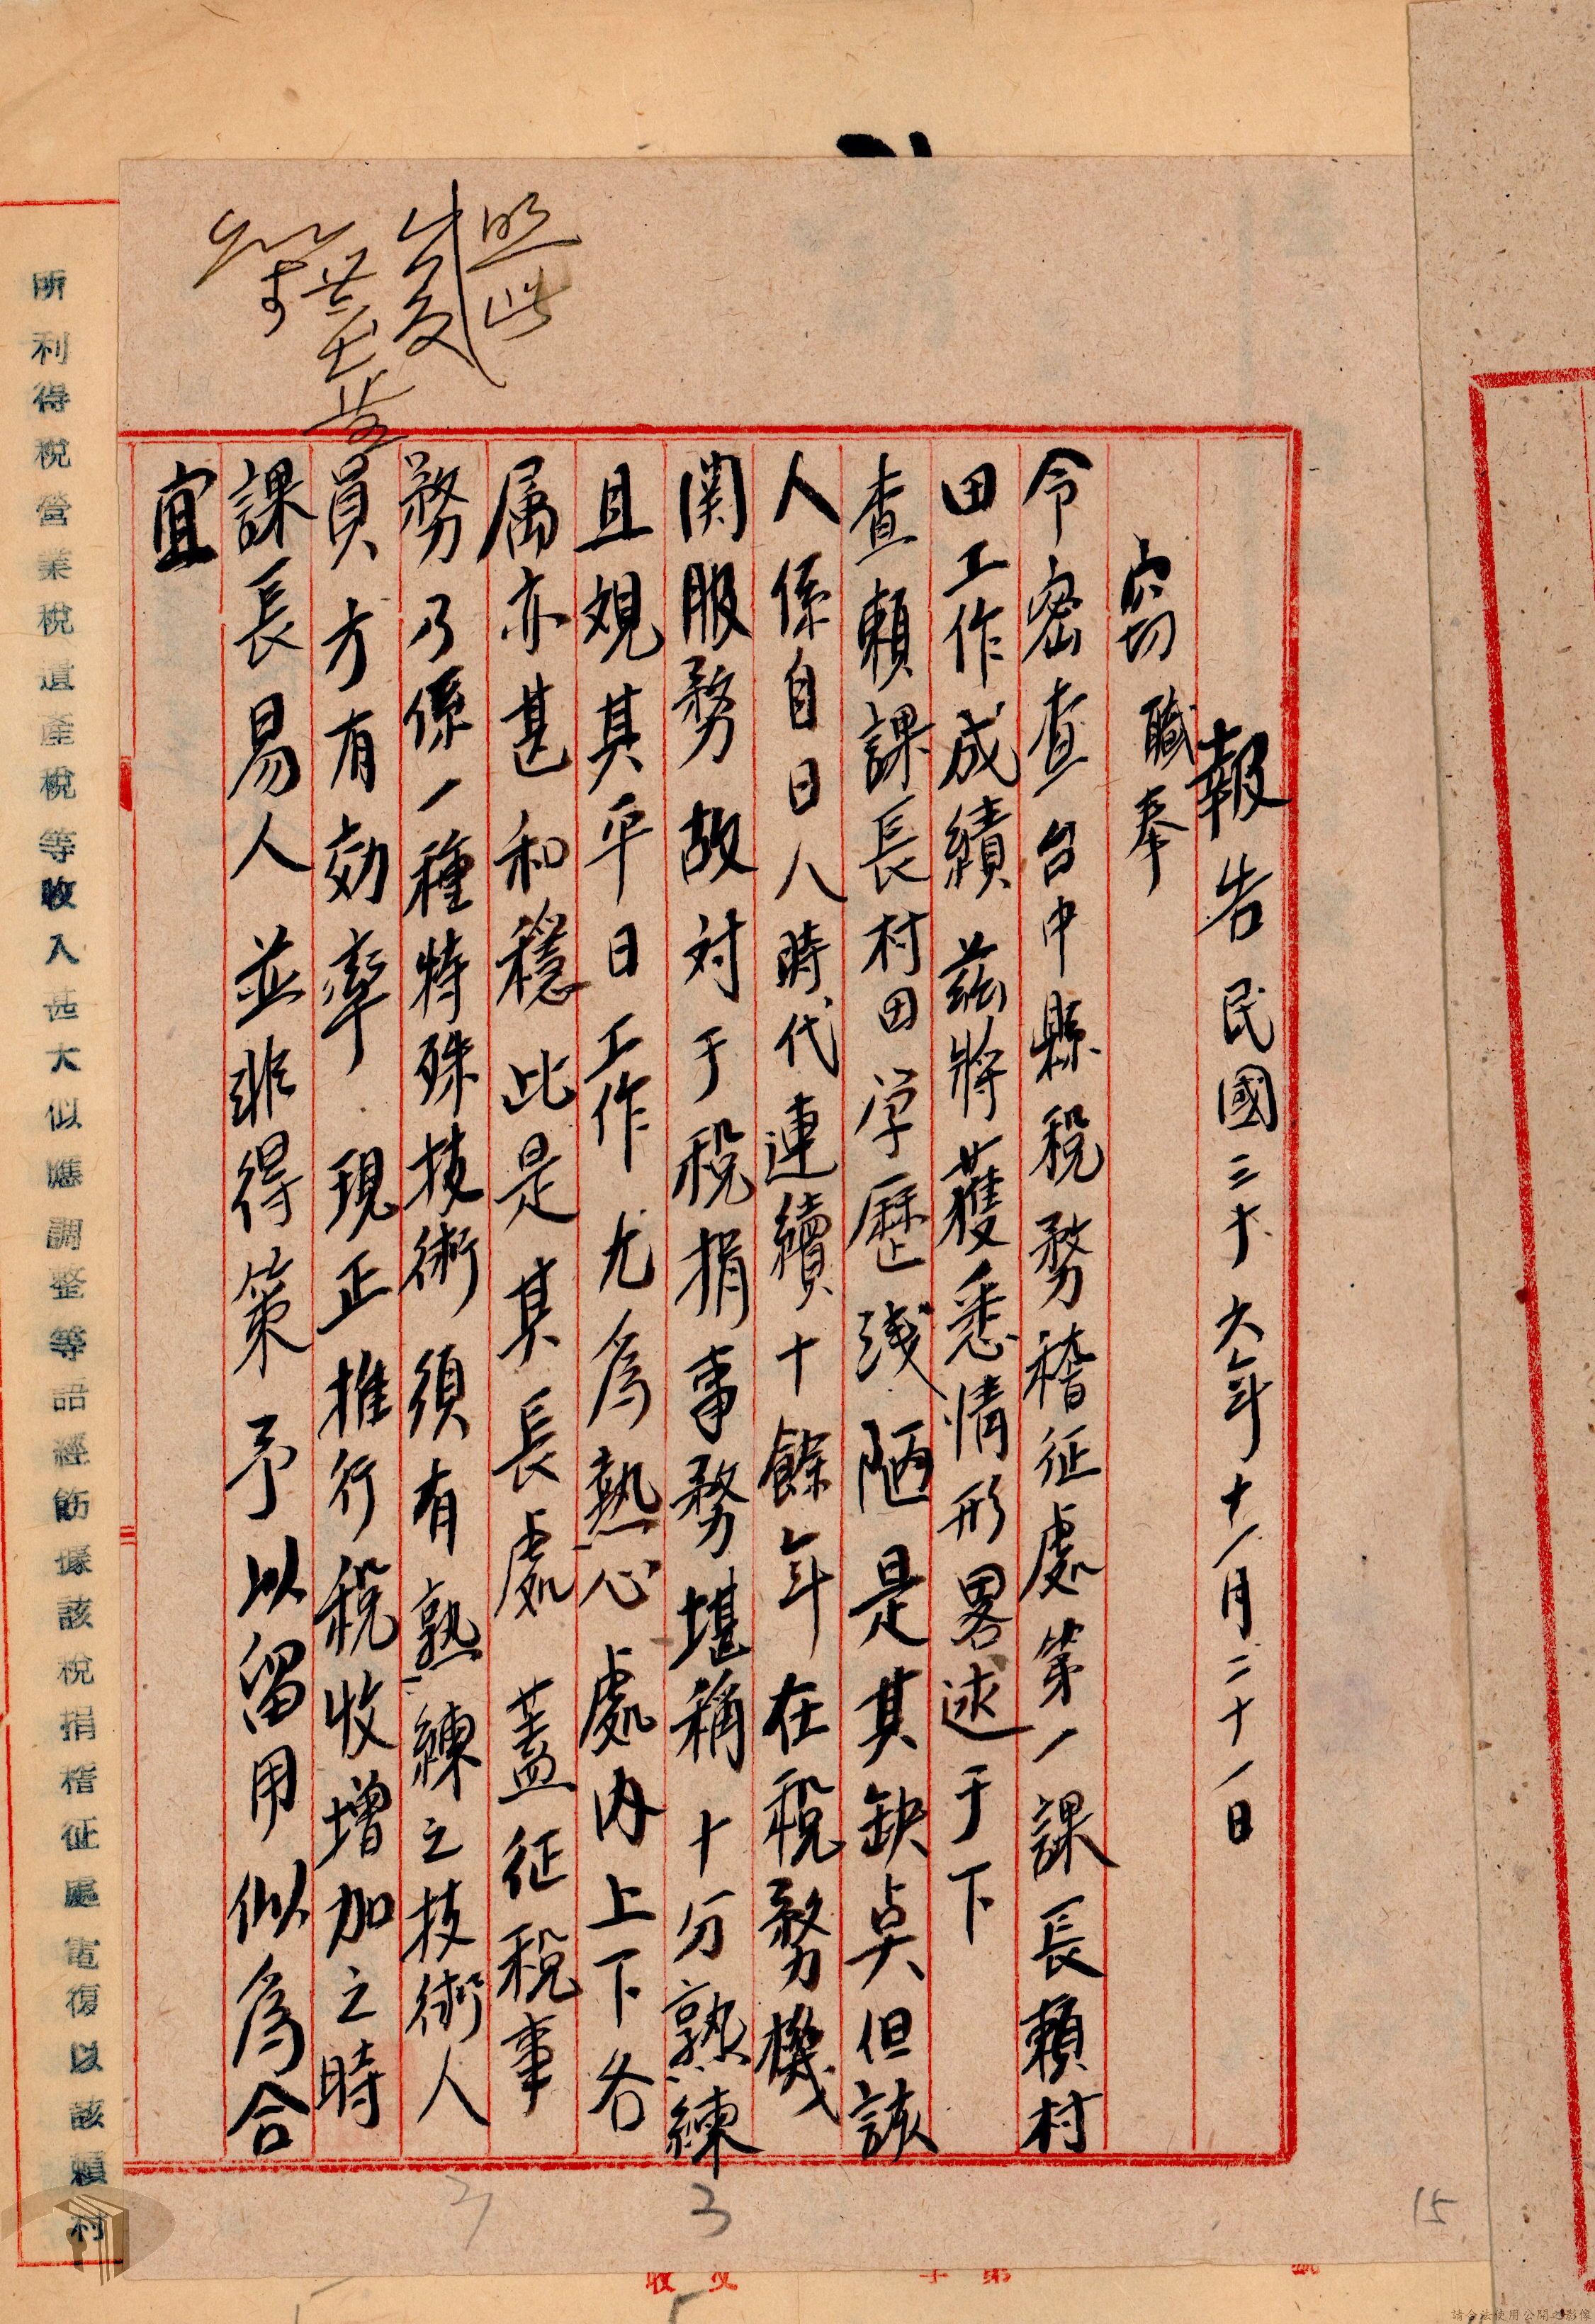 報告 民國三十六年十一月二十一日
窃職奉
令密查台中縣稅務稽征處第一課長賴村
田工作成績茲將獲悉情形畧述于下
查賴課長村田学歷浅陋是其缺点但該
人係自日人時代連續十餘年在稅務機
関服務故对于稅捐事務堪稱十分熟練
且覌其平日工作尤為熱心處內上下各
属亦甚和穩此是其長處蓋征稅事
務乃係一種特殊技術須有熟練之技術人
員方有効率現正推行稅收增加之時
課長易人並非得策予以留用似為合
宜
照此
所利得稅營業稅遺產稅等收入甚大似應調整等語經飭據該稅捐稽征處電復以該賴村
3
15
請合法使用公開之影像